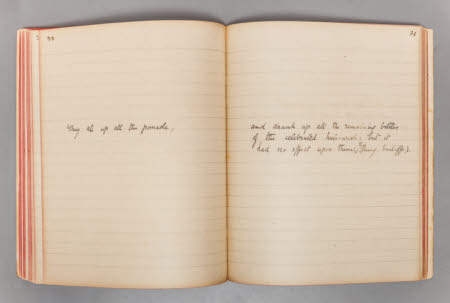 30
They ate up all the pomade,
31
and drank up all the remaining bottles
of the celebrated hair-wash; but it
had no effect upon them